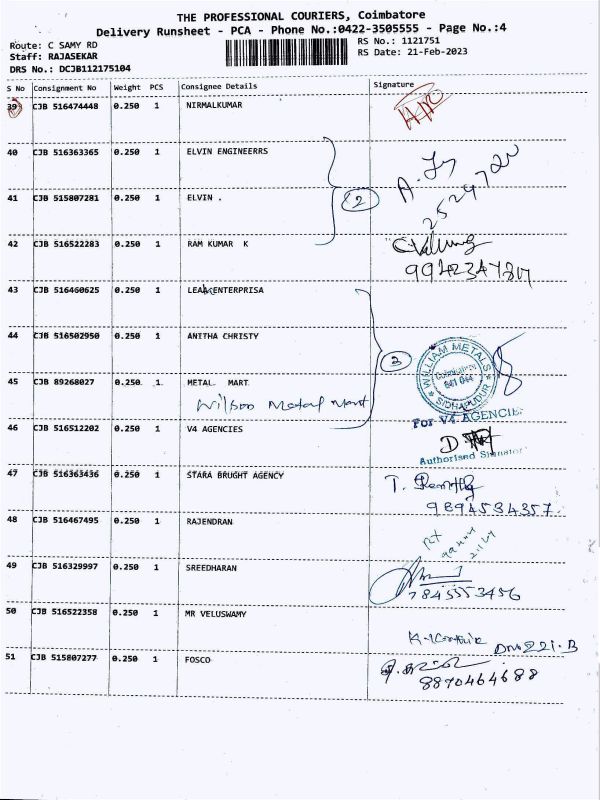 THE PROFESSIONAL COURIERS, Coimbatore
Delivery Runsheet - PCA - Phone No.:0422-3505555 - Page No.:4
Route: C SAMY RD
RS No.: 1121751
Staff: RAJASEKAR
RS Date: 21-Feb-2023
DRS No.: DCJB112175104
S No Consignment No Weight PCS Consignee Details Signature
39 CJB 516474448 0.250 1 NIRMALKUMAR
40 CJB 516363365 0.250 1 ELVIN ENGINEERRS
41 CJB 515807281 0.250 1 ELVIN .
2
42 CJB 516522283 0.250 1 RAM KUMAR K
43 CJB 516460625 0.250 1 LEAK ENTERPRISA
44 CJB 516502950 0.250 1 ANITHA CHRISTY
3
WILLIAM METALS
Coimbatore
641 044
SIDHAPUDUR
45 CJB 89268027 0.250 1 METAL MART
Wilson Metal Mart
46 CJB 516512202 0.250 1 V4 AGENCIES
For V4 AGENCIES
Authorised Signator
47 CJB 516363436 0.250 1 STARA BRUGHT AGENCY
9894534357
48 CJB 516467495 0.250 1 RAJENDRAN
49 CJB 516329997 0.250 1 SREEDHARAN
7845553456
50 CJB 516522358 0.250 1 MR VELUSWAMY
51 CJB 515807277 0.250 1 FOSCO
8870464688